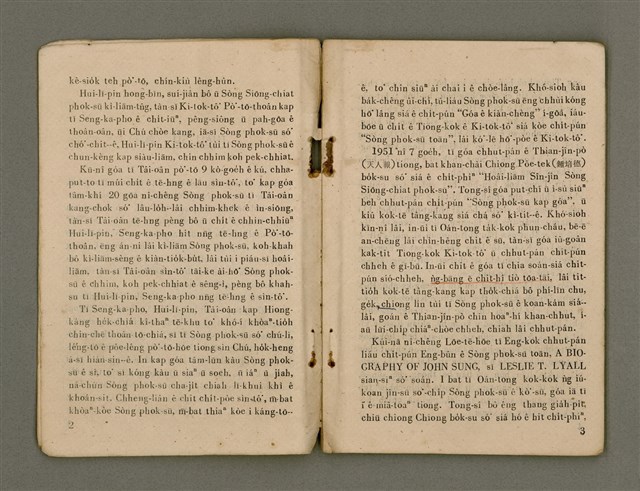 kè-siok teh pò͘-tō, chín-kiù lêng-hûn.
Hui-li-pin hong-bīn, sui-jiân bô ū Sòng Siōng-chiat
phok-sū kì-liām-tn̂g, tān-sī Ki-tok-tô͘ Pò͘-tō-thoân kap
tī Seng-ka-pho ê chit-iūⁿ, pêng-siông ū pah-góa ê
thoân-oân, ūi Chú chòe kang, iā-sī Sòng phok-sū só͘
chó͘-chit--ê. Hui-li-pin Ki-tok-tô͘ tùi tī Sòng phok-sū ê
chun-kèng kap siàu-liām, chin chhim koh pek-chhiat.
Kū-nî góa tī Tâi-oân pò͘-tō 9 kò-goe̍h ê kú, chha-
put-to tī múi chit ê tē-hng ê lāu sìn-tô͘, to͘ kap góa
tâm-khí 20 gōa nî-chêng Sòng phok-sū tī Tâi-oân
kang-chok só͘ lâu-lo̍h-lâi chhim-khek ê ìn-siōng,
tān-sī Tâi-oân tē-hng pêng bô ū chit ê chhin-chhiūⁿ
Hui-li-pin, Seng-ka-pho hit nn̄g tē-hng ê Pò͘-tō-
thoân, ēng án-ni lâi kì-liām Sòng phok-sū, koh-khah
bô kì-liām-sèng ê kiàn-tio̍k-bu̍t, lâi tùi i piáu-sī hoâi-
liām, tān-sī Tâi-oân sìn-tô͘ tāi-ke ài-hō͘ Sòng phok-
sū ê chhim, koh pek-chhiat ê sêng-ì, pèng bô khah-
su tī Hui-li-pin, Seng-ka-pho nn̄g tē-hng ê sìn-tô͘.
Tī Seng-ka-pho, Hui-li-pin, Tâi-oân kap Hiong-
káng he̍k-chiá kî-thaⁿ tē-khu to͘ khó-í khòaⁿ-tio̍h
chin-chē thoân-tō-chiá, sī tī Sòng phok-sū só͘ chú-lí,
léng-tō ê pôe-lêng pò͘-tō-hōe tiong sìn Chú, ho̍k-heng
á-sī hiàn-sin--ê. In kap góa tâm-lūn kàu Sòng phok-
sū ê sî, to͘ sī kóng-kàu ū siaⁿ ū soeh, ū iáⁿ ū jiah,
ná-chún Sòng phok-sū cha-ji̍t chiah lī-khui khì ê
khoán-sit. Chheng-liân ê chit chi̍t-pòe sìn-tô͘, m̄-bat
khòaⁿ-kòe Sòng phok-sū, m̄-bat thiaⁿ kòe i káng-tō--
2
ê, to͘ chin siūⁿ ài chai i ê chòe-lâng. Khó-sioh kàu
ba̍k-chêng ûi-chí, tû-liáu Sòng phok-sū ēng chhùi kóng
hō͘ lâng siá ê chi̍t-pún "Góa ê kiàn-chèng" í-gōa, iáu-
bōe ū chit ê Tiong-kok ê Ki-tok-tô͘ siá kòe chit-pún
"Sòng phok-sū toān", lâi kò͘-lē hō͘-pòe ê Ki-tok-tô͘.
1951 nî 7 goe̍h, tī góa chhut-pán ê Thian-jîn-pò
(天人報) tiong, bat khan-chài Chiong Pòe-tek (鍾培德)
bo̍k-su só͘ siá ê chi̍t-phiⁿ "Hoâi-liām Sîn-jîn Sòng
Siōng-chiat phok-sū". Tong-sî góa put-chí ū ì-sù siūⁿ
beh chhut-pán chi̍t-pún "Sòng phok-sū kap góa", ū
kiù kok-tē tâng-kang siá chá só͘ kì-tit--ê. Khó-sioh
kin-nî lâi, in-ūi tī Oán-tong ta̍k-kok phun-cháu, bē-ē
an-chēng lâi chìn-hêng chit ê sū, tān-sī góa iû-goân
kak-tit Tiong-kok Ki-tok-tô͘ ū chhut-pán chi̍t-pún
chheh ê gī-bū. In-ūi chit ê góa tī chia soán-siá chi̍t-
pún sió-chheh, n̄g-bāng ê chit-hī tiò tōa-tāi, lâi tit-
tio̍h kok-tē tâng-kang kap tho̍k-chiá bô phí-līn chu,
ge̍k, chiong lín tùi tī Sòng phok-sū ê koan-kám siá--
lâi, goân ê Thian-jîn-pò chìn hoaⁿ-hí khan-chhut, í-
āu lūi-chip chiâⁿ-chòe chheh, chiah lâi chhut-pán.
Kúi-nā nî-chêng Lōe-tē-hōe tī Eng-kok chhut-pán
liáu chi̍t-pún Eng-bûn ê Sòng phok-sū toān, A BIO-
GRAPHY OF JOHN SUNG, sī LESLIE T. LYALL
sian-siⁿ só͘ soán. I bat tī Oán-tong kok-kok n̄g iú-
koan jîn-sū só͘-chip Sòng phok-sū ê kò͘-sū, góa iā tī
i ê miâ-toaⁿ tiong. Tong-sî bô êng thang giâ-pit,
chiū chiong Chiong bo̍k-su só͘ siá hó ê hit chi̍t-phiⁿ,
3